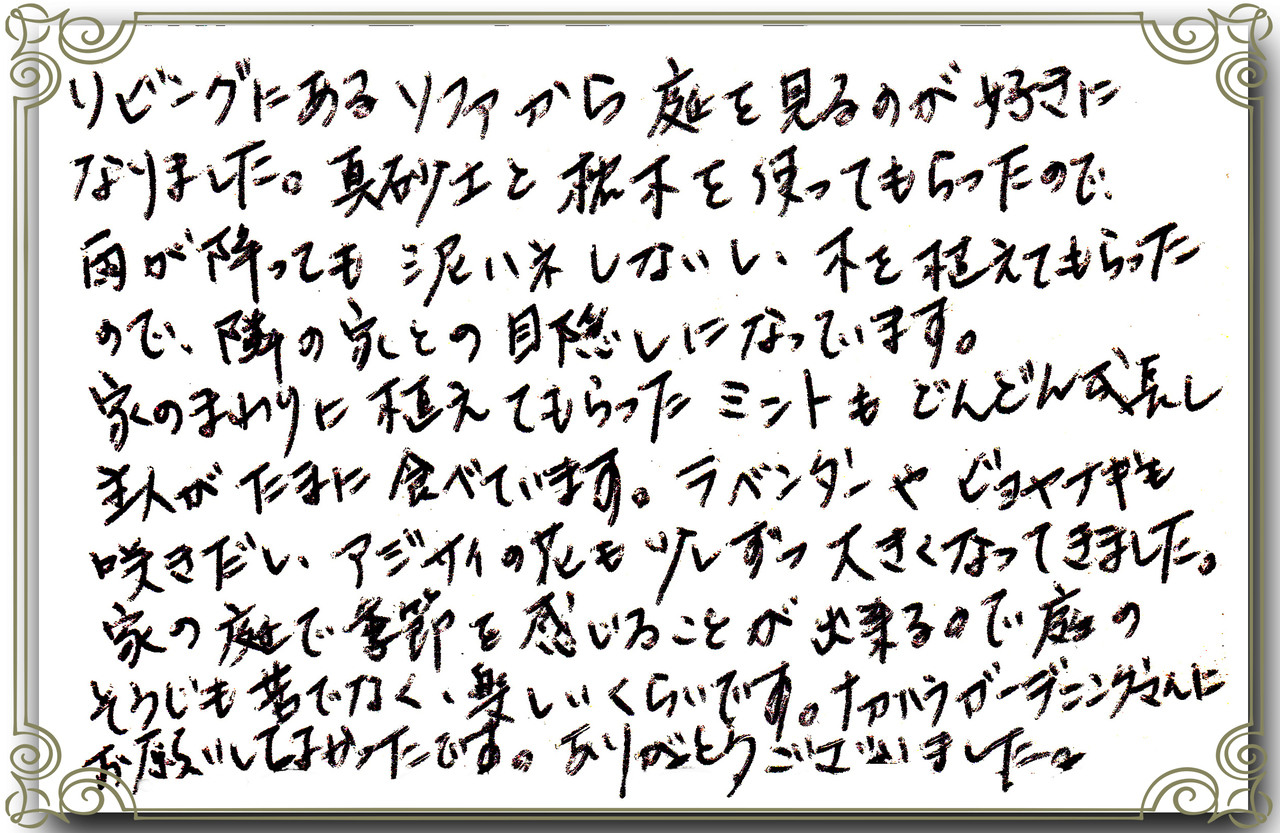 リビングにあるソファから庭を見るのが好きに
なりました。真砂土と枕木を使ってもらったので、
雨が降っても泥ハネしないし、木を植えてもらった
ので、隣の家との目隠しになっています。
家のまわりに植えてもらったミントもどんどん成長し
主人がたまに食べています。ラベンダーやビヨウヤナギも
咲きだし、アジサイの花も少しずつ大きくなってきました。
家の庭で季節を感じることが出来るので庭の
そうじも苦でなく、楽しいくらいです。ナカバラガーデニングさんに
お願いしてよかったです。ありがとうございました。